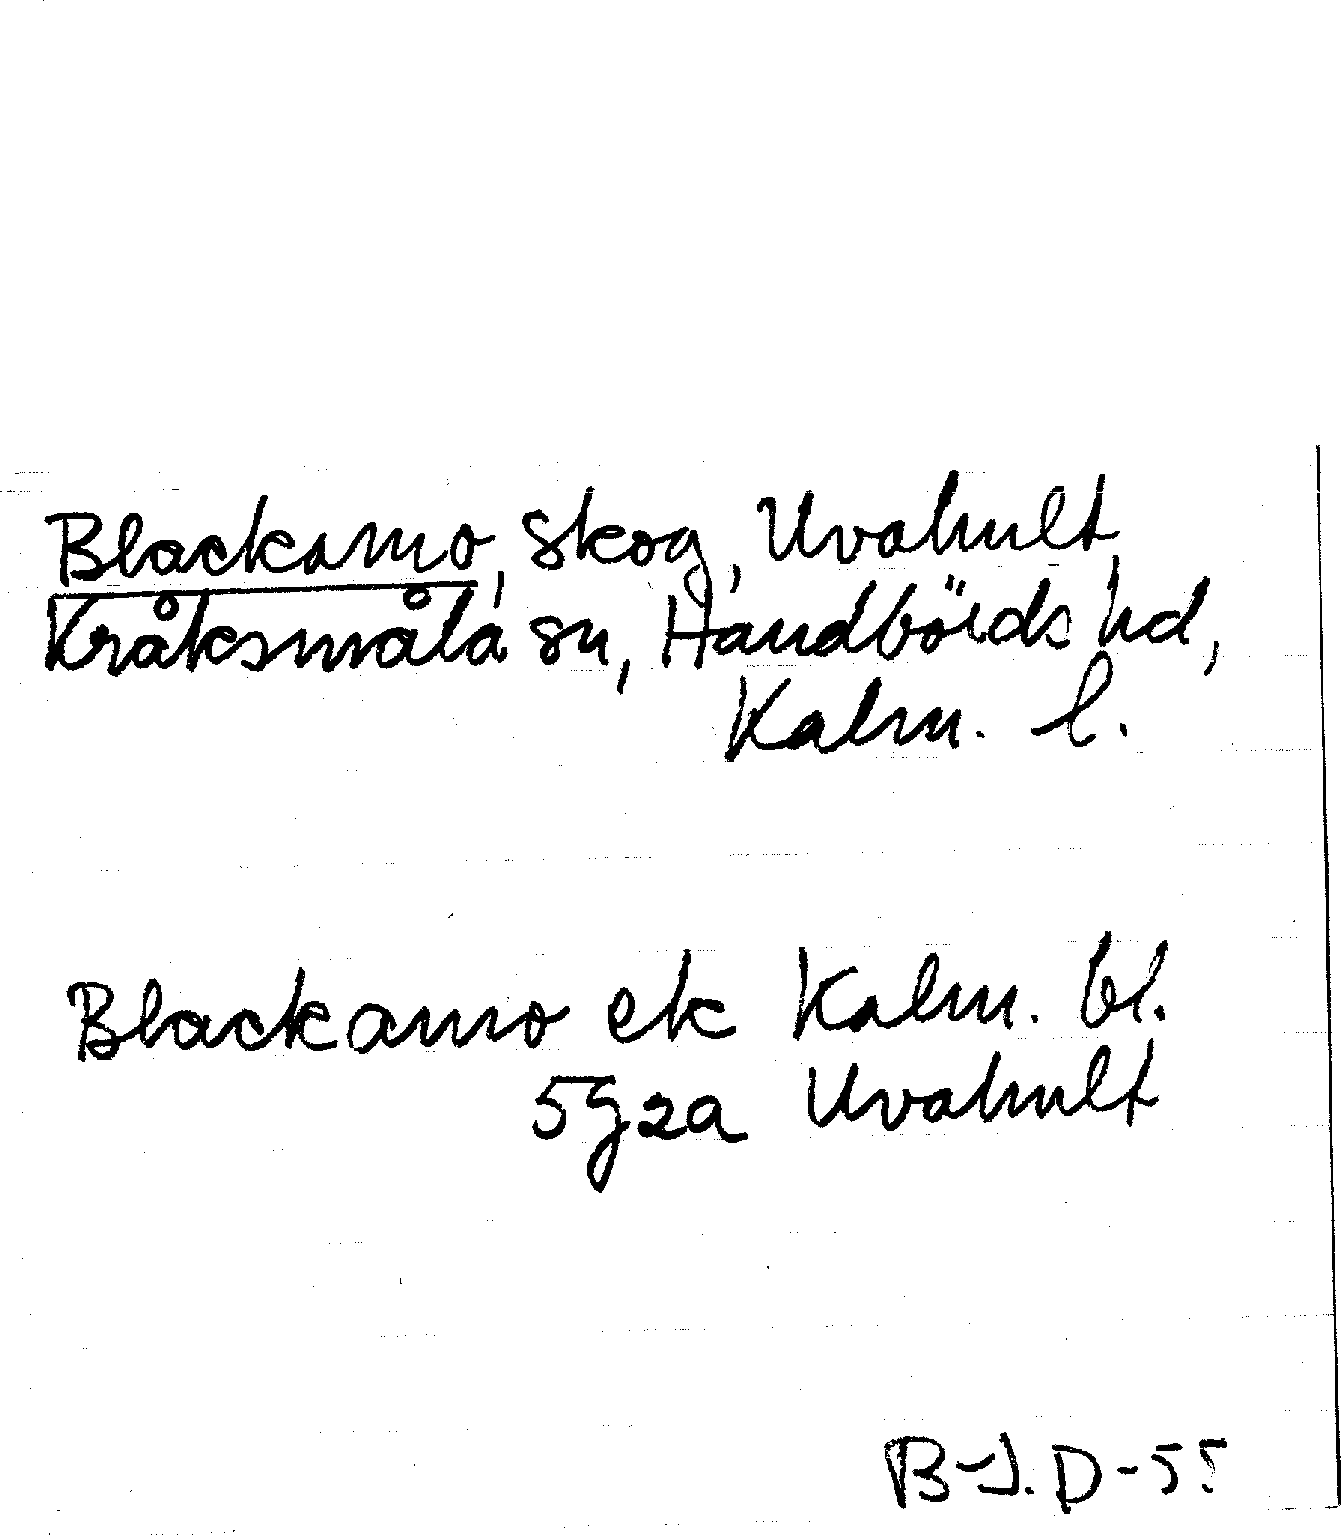 Blackamo, skog, Uvahult,
Kråksmåla sn, Handbörds hd,
Kalm. l.
Blackamo ek Kalm. bl.
5g2a Uvahult
B-J.D-55